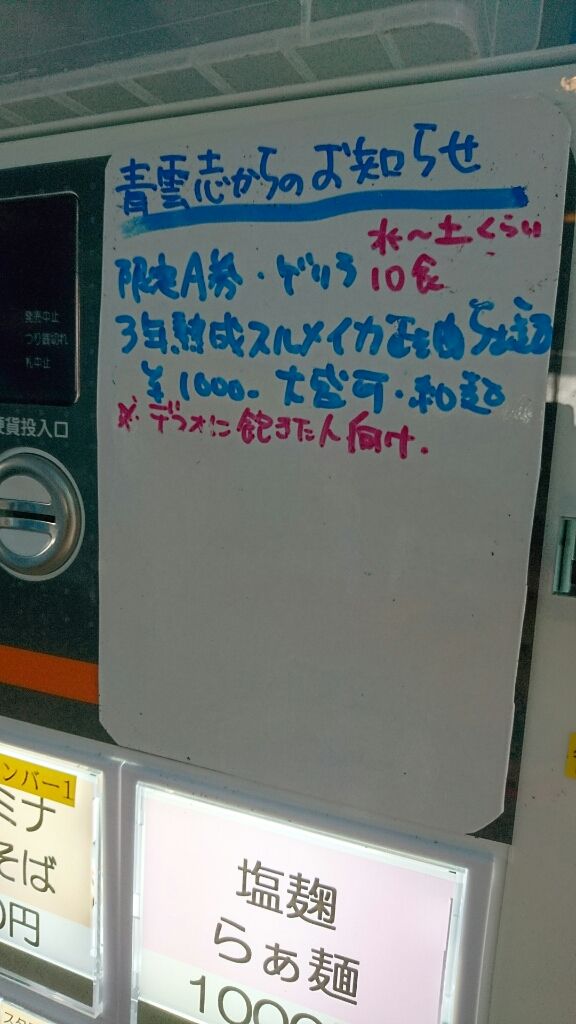 青雲志からのお知らせ
水〜土くらい
限定A券・ゲリラ 10食
3年熟成スルメイカ麹らぁ麺
¥1000- 大盛可・和麺
※デフォに飽きた人向け.
発売中止
つり銭切れ
札中止
硬貨投入口
ンバー1
ミナ
そば
0円
塩麹
らぁ麺
1000
スタ